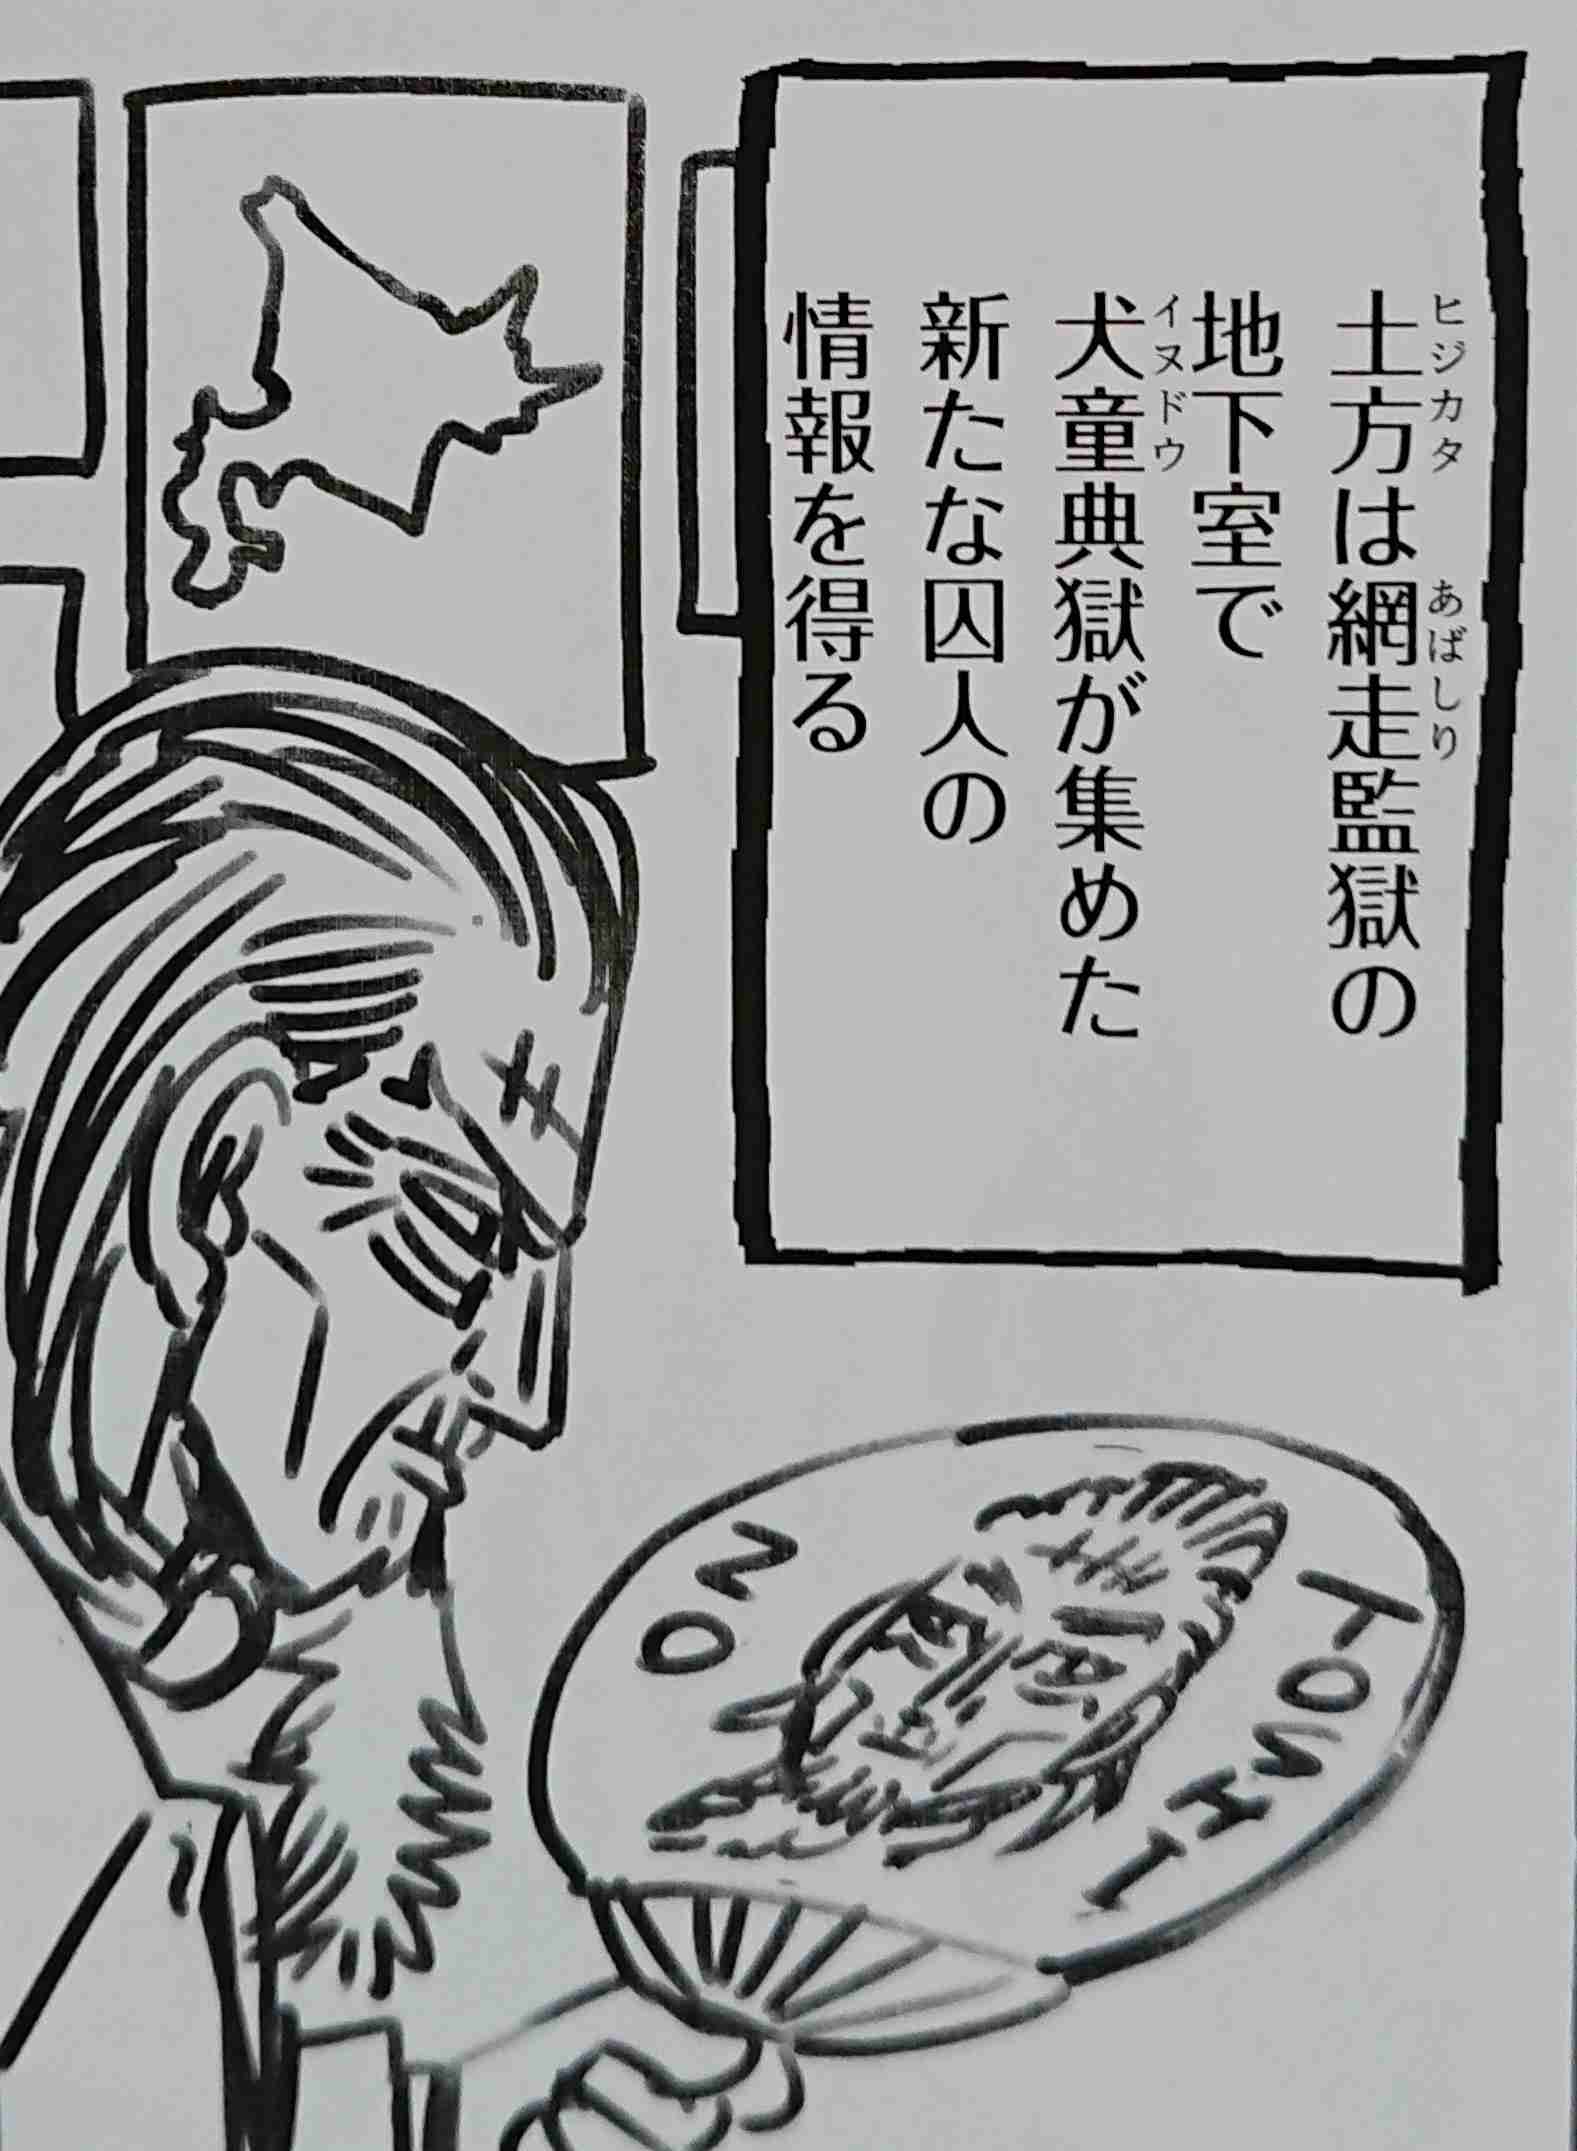 土方は網走監獄の
ヒジカタ
あばしり
地下室で
犬童典獄が集めた
イヌドウ
新たな囚人の
情報を得る
NO
TOSHI